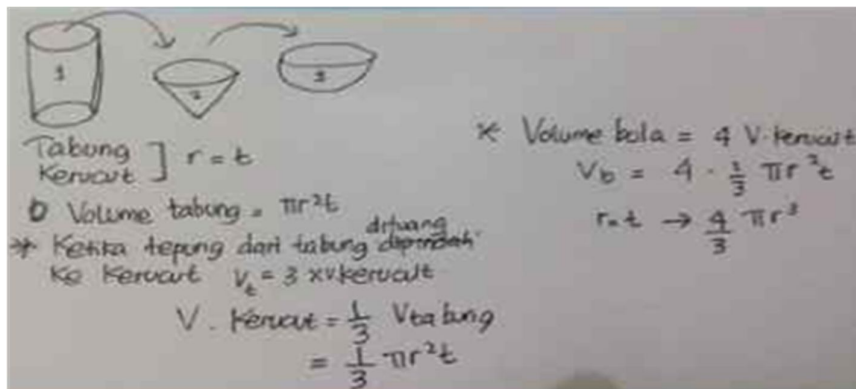 1
2
3
Tabung
Kerucut ] r = t
Volume tabung = πr²t
* Ketika tepung dari tabung dituang
Ke Kerucut V_t = 3 x v kerucut
V. Kerucut = 1/3 V tabung
= 1/3 πr²t
* Volume bola = 4 V. kerucut
V_b = 4 · 1/3 πr²t
r = t → 4/3 πr³